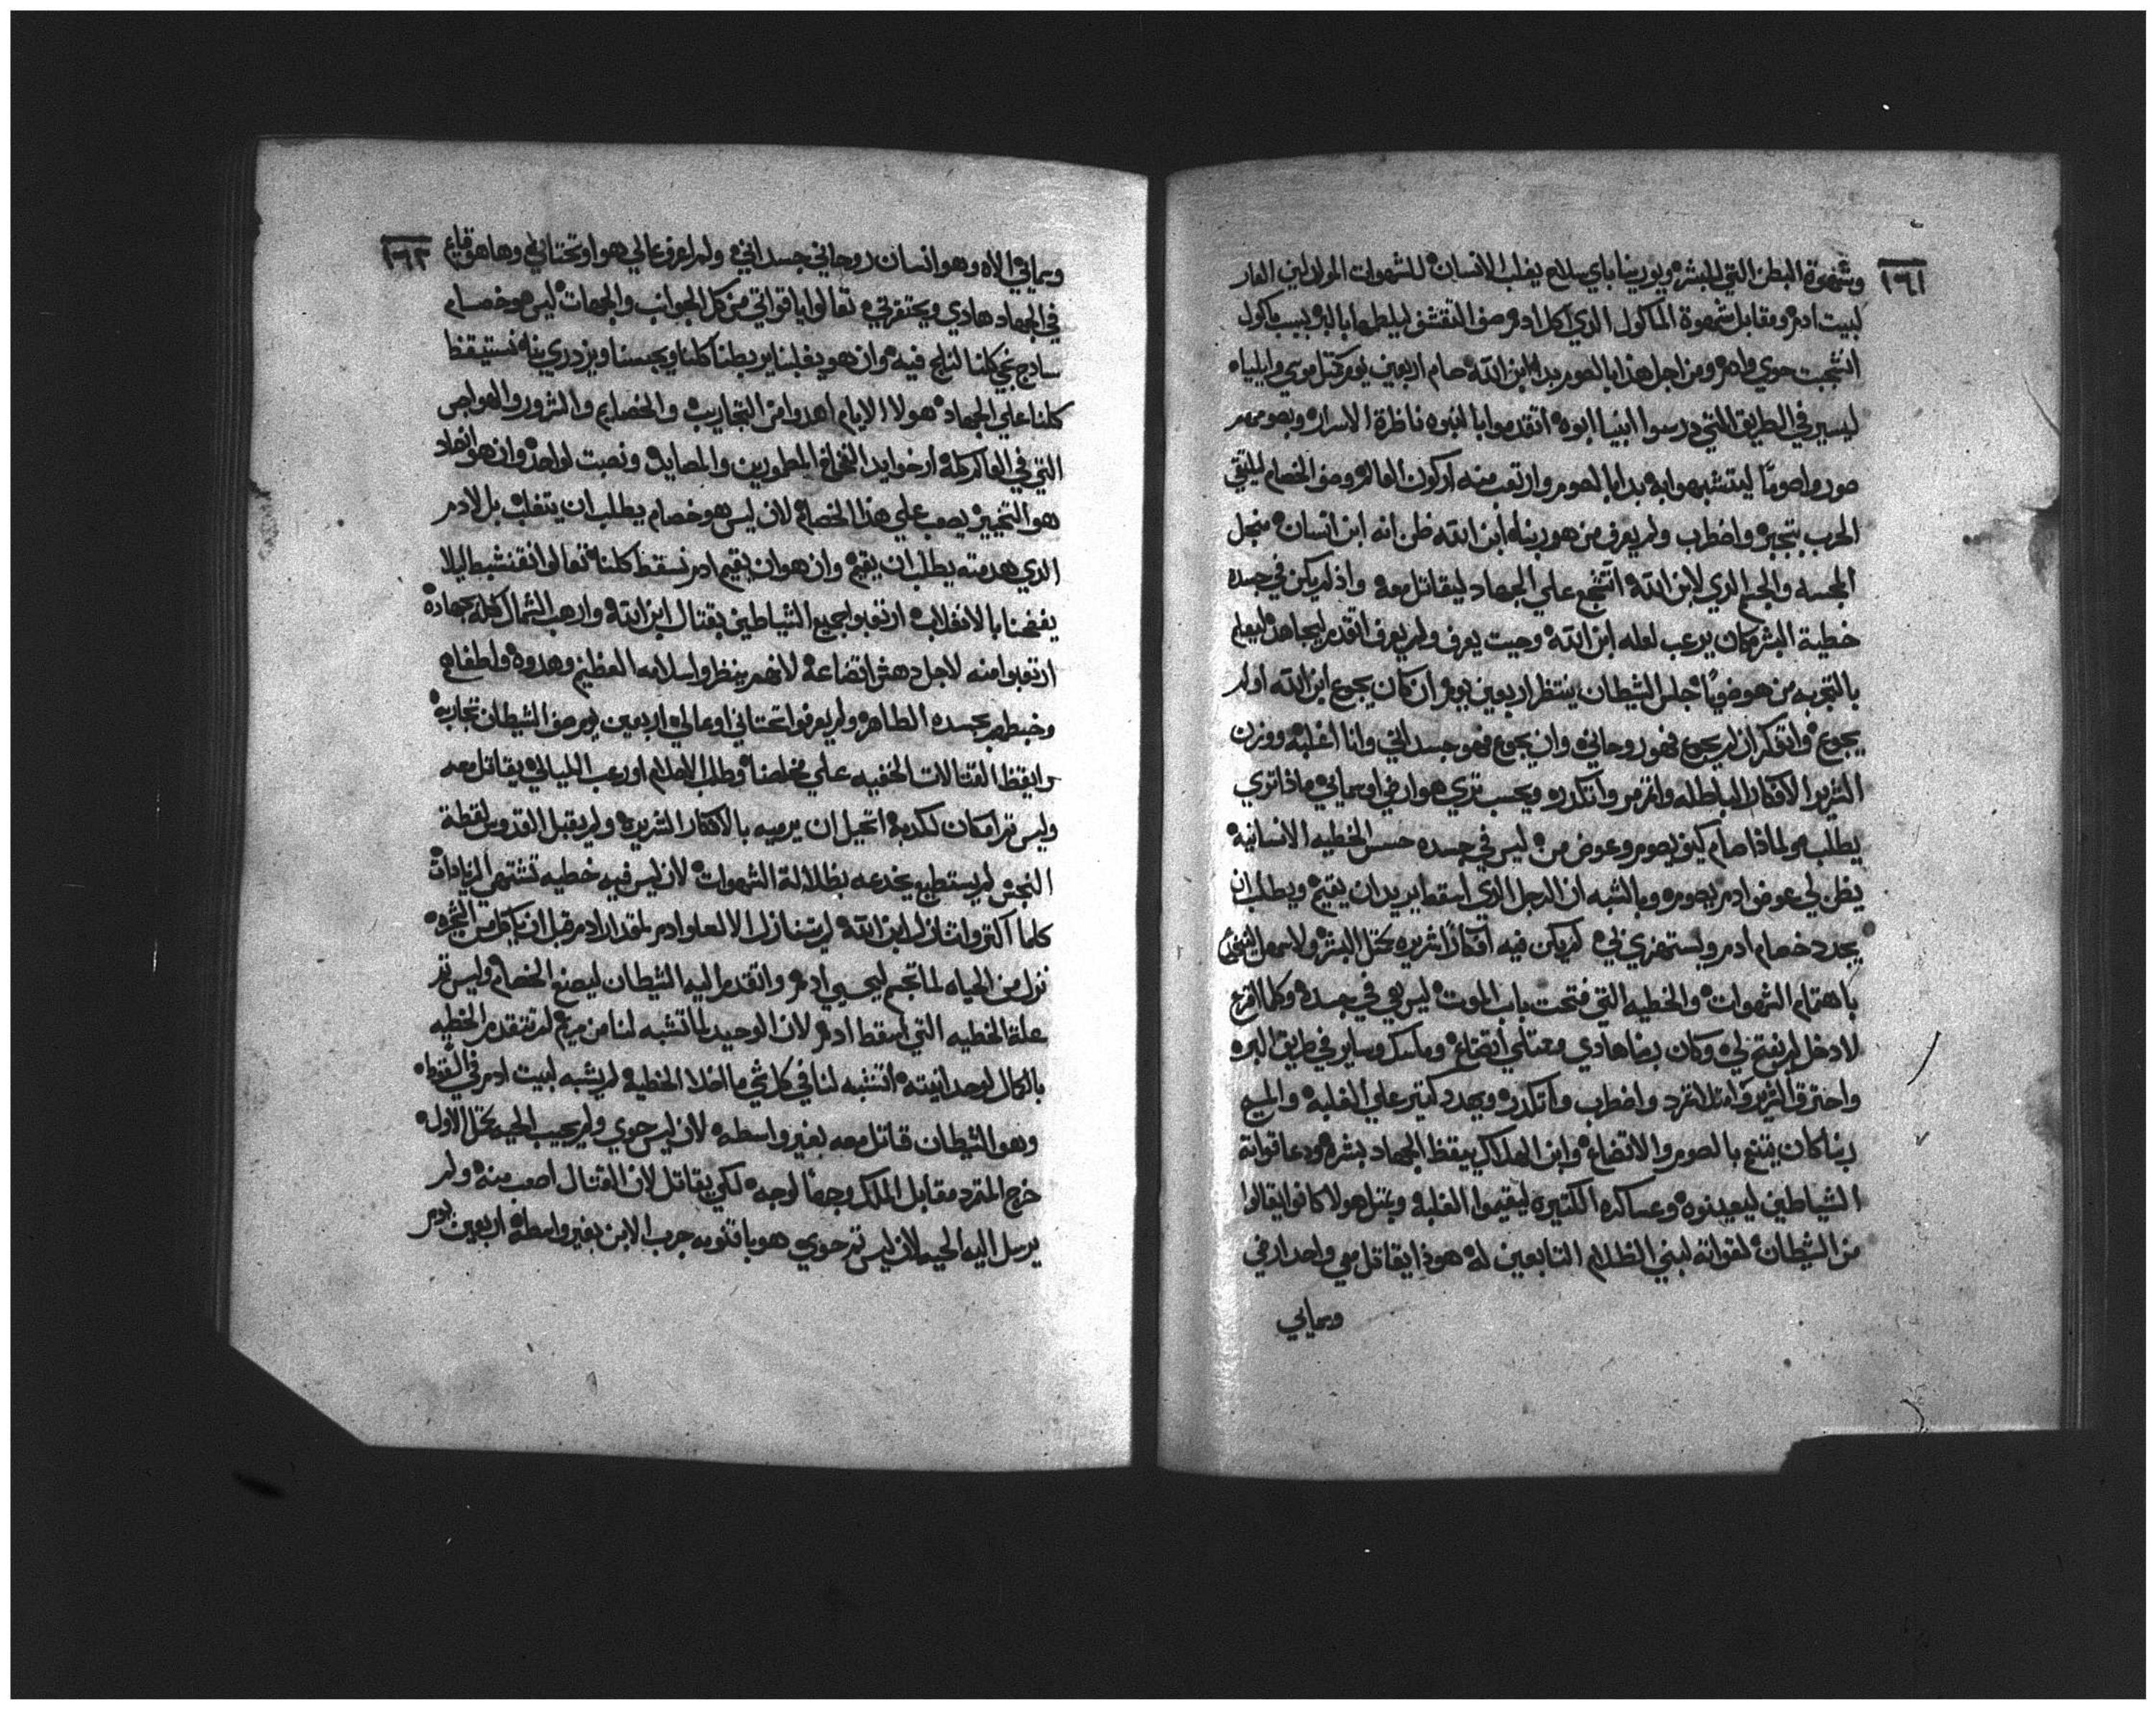 ١٦١
وشهوة البطن التي للبشره ويورينا باي سلاح يغلب الانسان للشهوات المولدين العار
لبيت ادم ومقابل شهوة الماكول الذي اكل ادم صف التقشف ليلطمها بالبر بسبب ماكول
انشجبت حوي وادم ومن اجل هذا بالصوم بدا ابن الله صام اربعين يوم كمثل موسي وايلياه
ليسير في الطريق التي درسوا انبيا ابوه اتقدموا بالنبوه ناظرة الاسرار وبصومهم
صوروا صومًا ليتشبهوا به بدا بالصوم وارتعب منه اركون العالم وصف الخصام ليلتقي
الحرب بتحير واضطرب ولم يعرف من هو ربنا ابن الله ظن انه ابن انسان من جل
المجسه والجسم الذي لابن الله اتشجع علي الجهاد ليقاتل معه واذ لم يكن في جسده
خطية البشر كان يرعب لعله ابن الله وحيت يعرف ولم يعرف اتقدم ليجاهد ليعلم
بالتجربه من هو خفيًا جلس الشيطان ينتظر اربعين يوم ان كان يجوع ابن الله اولم
يجوع واتفكر ان لم يجوع فهو روحاني وان يجوع فهو جسداني وانا اغلبه ووزن
الشرير الافكار الباطله واتزمر واتكدر ويحسب تري هو ارضي او سمايي ماذا تري
يطلب هو لماذا صام كيف يصوم وعوض من ليس في جسده حسس الخطيه الانسانيه
يظن لي عوض ادم يصوم وبالشبه ان الرجل الذي اسقط يريد ان يقيم ويطلب ان
يجدد خصام ادم ويستهزي بي لم يكن فيه افكارًا شريره بختل البشر ولا سهل
باهتمام الشهوات والخطيه التي فتحت باب الموت ليس هي في جسده وكلما اقرع
لادخل لم يفتح لي وكان ربنا هادي ممتلي اتضاع وماسك وساير في طريق البره
واحترق الشرير وامتلا تمرد واضطرب واتكدر ويعدد كتير علي الغلبه والمسيح
ربنا كان يتمتع بالصوم والاتضاع وابن الهلاك يقظ الجهاد بشره ودعا قواته
الشياطين ليعينوه وعساكره الكتيره ليقيموا الغلبه وبمتل هولا كانوا يقالوا
من الشيطان لقواته لبني الظلام التابعين له هوذا يقاتل معي واحد ارضي
وسمايي
١٦٢
وسمايي الاه وهو انسان روحاني جسداني ولم اعرف عالي هو او تحتاني وها هو قايم
في الجهاد هادي ويحتقر بي تعالوا يا قواتي من كل الجوانب والجهات ليس هو خصام
سادج نجي كلنا لنلج فيه وان هو يغلبنا يربطنا كلنا ويحبسنا ويزدري بنا نستيقظ
كلنا علي الجهاد هولا الايام اهدوا من التجاريب والخصايم والشرور والهواجس
التي في العالم كله ارخوا يد الفخاخ المطمورين والمصايد ونصبت لواحد وان هو انصاد
هو التمييز يصعب علي هذا الخصام لان ليس هو خصام يطلب ان يتغلب بل لادم
الذي هدمته يطلب ان يقيم وان هو ان يقيم ادم نسقط كلنا تعالوا نتنشط ليلا
يفضحنا بالانغلاب ارتعبوا جميع الشياطين بقتال ابن الله وارهب الشمال كله بجهاده
ارتعبوا منه لاجل دهش اتضاعه لانهم ينظروا سلامه العظيم وهدوه ولطفاه
وخبطهم بجسده الطاهر ولم يعرفوا تحتاني او عالي اربعين يوم صف الشيطان تجاريبه
وايقظ القتالات الخفيه علي مخلصنا وطلب الاحلام اورعب الليالي يقاتل معه
وليس تم امكان لكدبه اتحيل ان يرميه بالافكار الشريره ولم يقبل القدوس لقطة
النجس لم يستطيع يخدعه بظلالة الشهوات لان ليس فيه خطيه تشتهي الزيادات
كلما اكتر واتنازل ابن الله لم يتنازل الا لعلو ادم بمقدار ادم قبل ان ياكل من الشجره
نزل من الحياه لما تجسم ليحيي ادم واتقدم اليه الشيطان ليصنع الخصام وليس تم
علة الخطيه التي اسقط ادم لان الوحيد لما تشبه لنا من مريم لم تتقدم الخطيه
بالكمال لوحدانيته اتشبه لنا في كل شي ما خلا الخطيه لم يشبه لبيت ادم في السقوط
وهو الشيطان قاتل معه بغير واسطه لان ليس حوي ولم يجيب الحيه بختل الاول
خرج المتمرد مقابل الملك وجهًا لوجه لكي يقاتل لان القتال اصعب منه ولم
يرسل اليه الحيه لان ليس تم حوي هو باقنومه جرب الابن بغير واسطة اربعين يوم